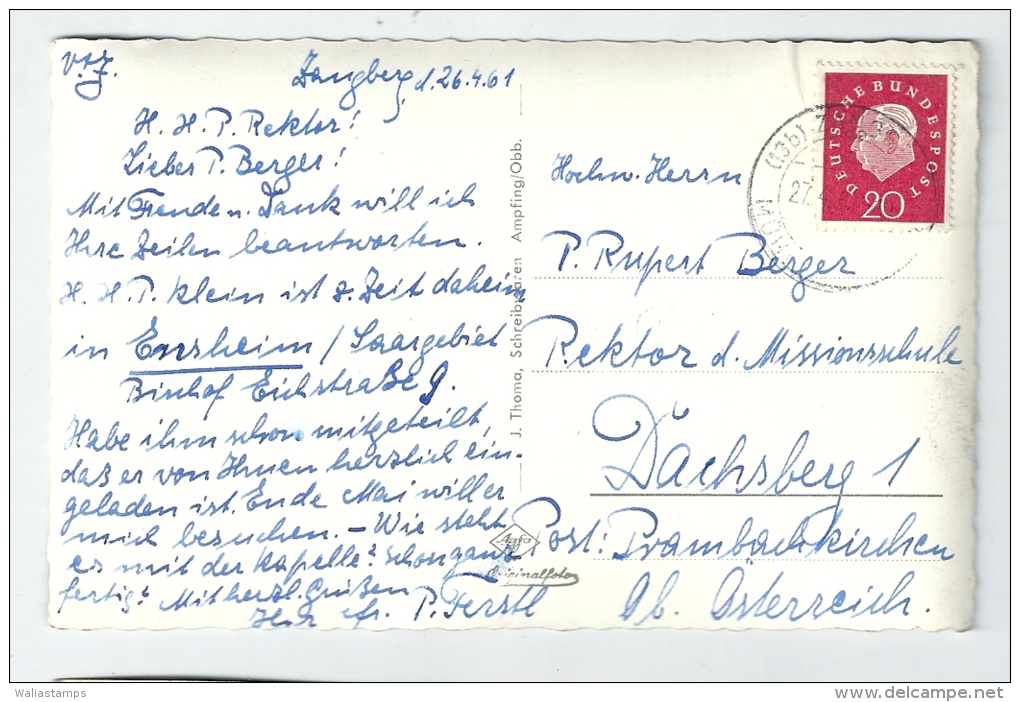 v.s.J.
Zangberg, d. 26.4.61
H. H. P. Rektor!
Lieber P. Berger!
Mit Freude u. Dank will ich
Ihre Zeilen beantworten.
H. H. P. Klein ist z. Zeit daheim
in Ensheim / Saargebiet
Eichstraße 9.
Habe ihm schon mitgeteilt,
das er von Ihnen herzlich ein-
geladen ist. Ende Mai will er
mich besuchen. – Wie steht
es mit der Kapelle? Schon ganz
fertig? Mit herzl. Grüßen
Ihr fr. P. Ferstl
J. Thoma, Schreibwaren Ampfing/Obb.
Agfa
Originalfoto
DEUTSCHE BUNDESPOST
20
(13b)
27.4
Hochw. Herrn
P. Rupert Berger
Rektor d. Missionsschule
Dachsberg 1
Post: Prambachkirchen
Ob. Österreich.
Waliastamps
http://www.delcampe.net